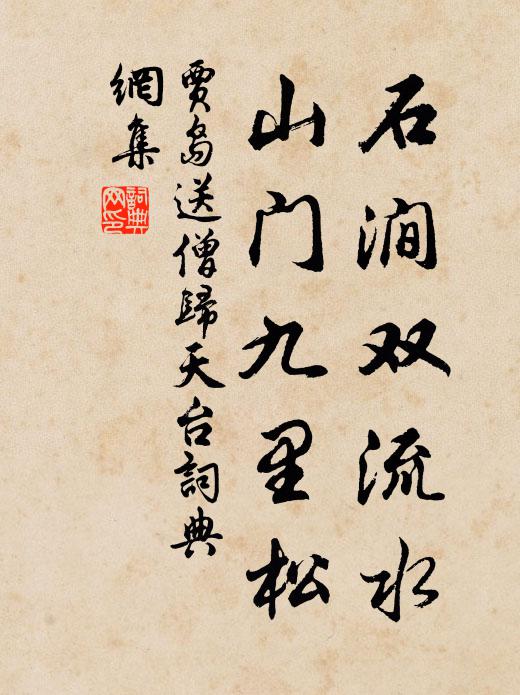 石涧双流水
山门九里松
賈島送僧歸天台詞典
網集
詞典
网印